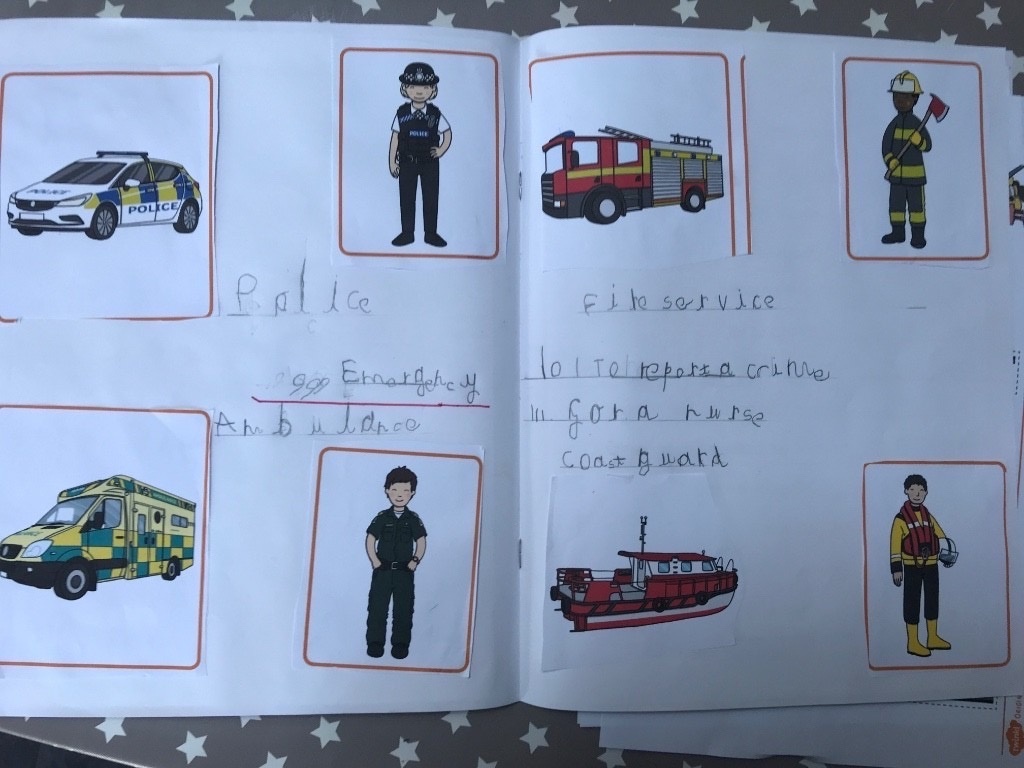 POLICE
POLICE
POLICE
Police
999 Emergency
Ambulance
Fire service
101 To report a crime
111 for a nurse
coast guard